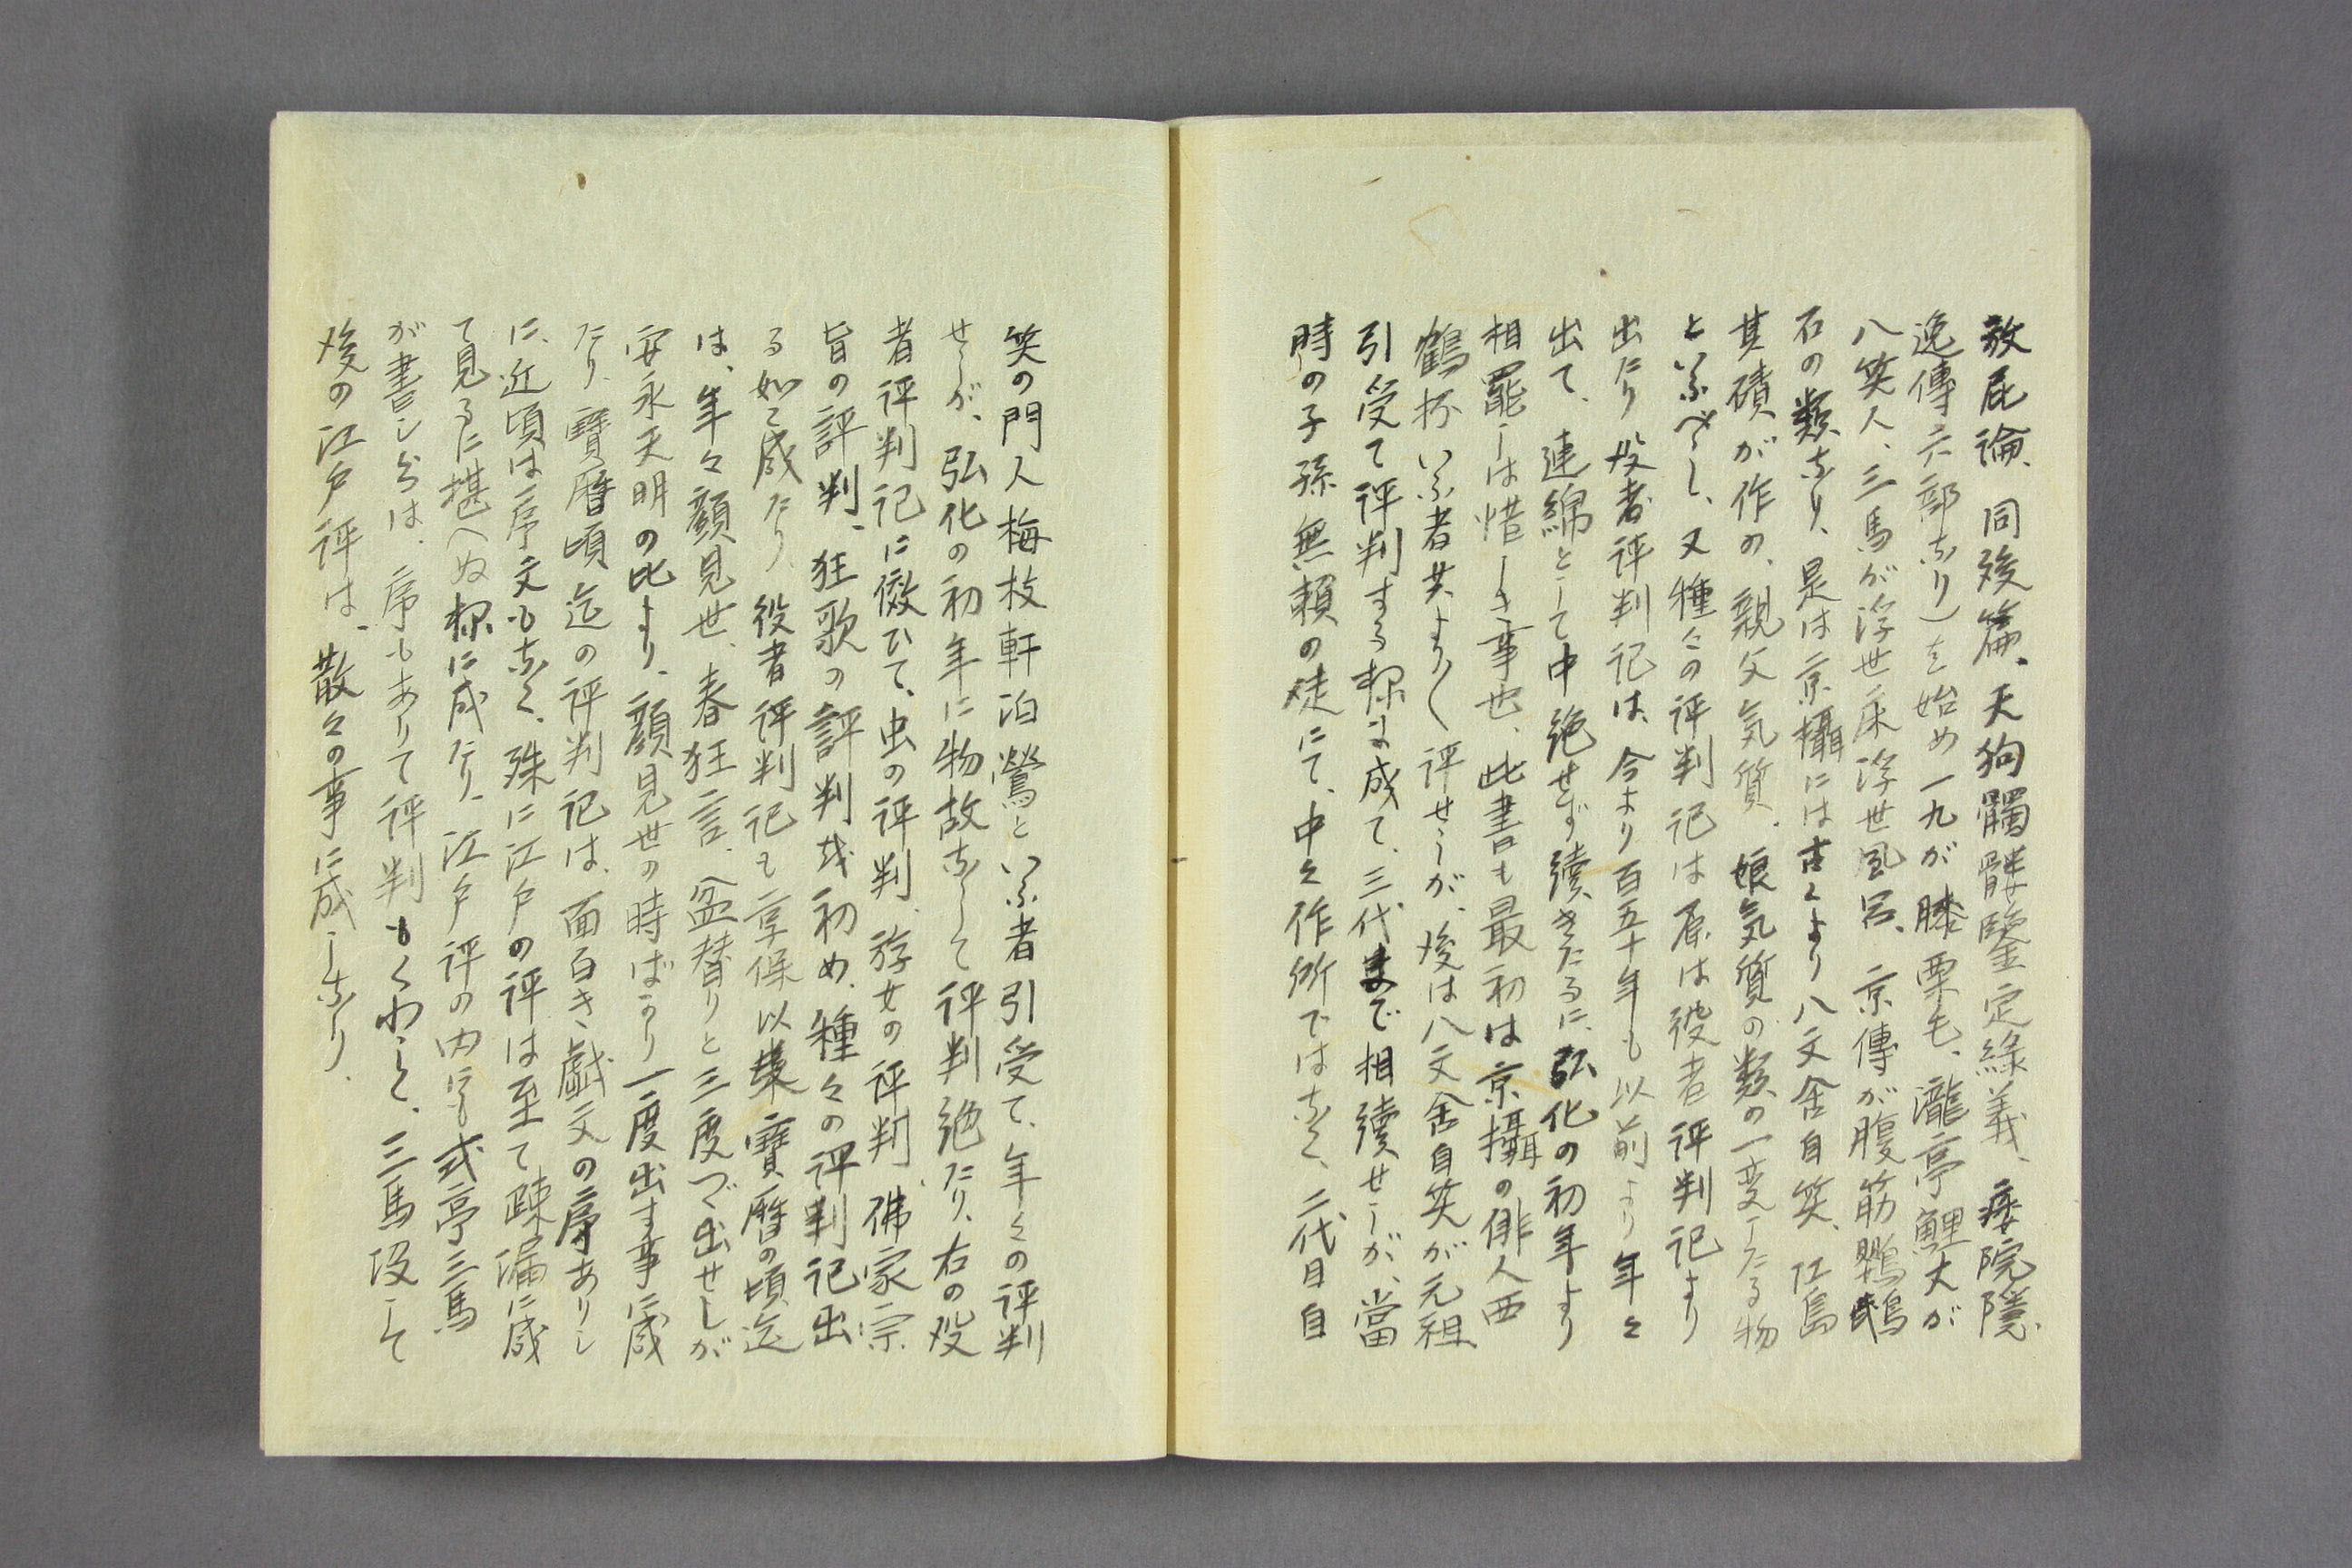 放屁論、同後篇、天狗髑髏鑒定緣義、痿陰隱
逸傳六部なり)を始め一九が膝栗毛、瀧亭鯉丈が
八笑人、三馬が浮世床浮世風呂、京傳が腹筋鸚鵡
石の類なり、是は京攝には古くより八文舍自笑、江島
其磧が作の、親父気質、娘気質の類の一変したる物
といふべし、又種々の評判記は原は役者評判記より
出たり役者評判記は、今より百五十年も以前より年々
出て、連綿として中絶せず續きたるに、弘化の初年より
相罷しは惜しき事也、此書も最初は京攝の俳人西
鶴抔いふ者共より〱評せしが、後は八文舍自笑が元祖
引受て評判する様に成て、三代まで相續せしが、當
時の子孫無頼の徒にて、中々作所ではなく、二代目自
笑の門人梅枝軒泊鶯といふ者引受て、年々の評判
せしが、弘化の初年に物故なして評判絶たり、右の役
者評判記に傚ひて、虫の評判、游女の評判、佛家宗
旨の評判、狂歌の評判を初め、種々の評判記出
る如く成たり、役者評判記も享保以来寶暦の頃迄
は、年々顔見世、春狂言、盆替りと三度づゝ出せしが
安永天明の比より、顔見世の時ばかり一度出す事に成
たり、寶暦頃迄の評判記は、面白き戯文の序ありし
に、近頃は序文もなく、殊に江戸の評は至て疎漏に成
て見るに堪へぬ様に成たり、江戸評の内にも式亭三馬
が書し分は、序もありて評判もくわしく、三馬没して
後の江戸評は、散々の事に成しなり、